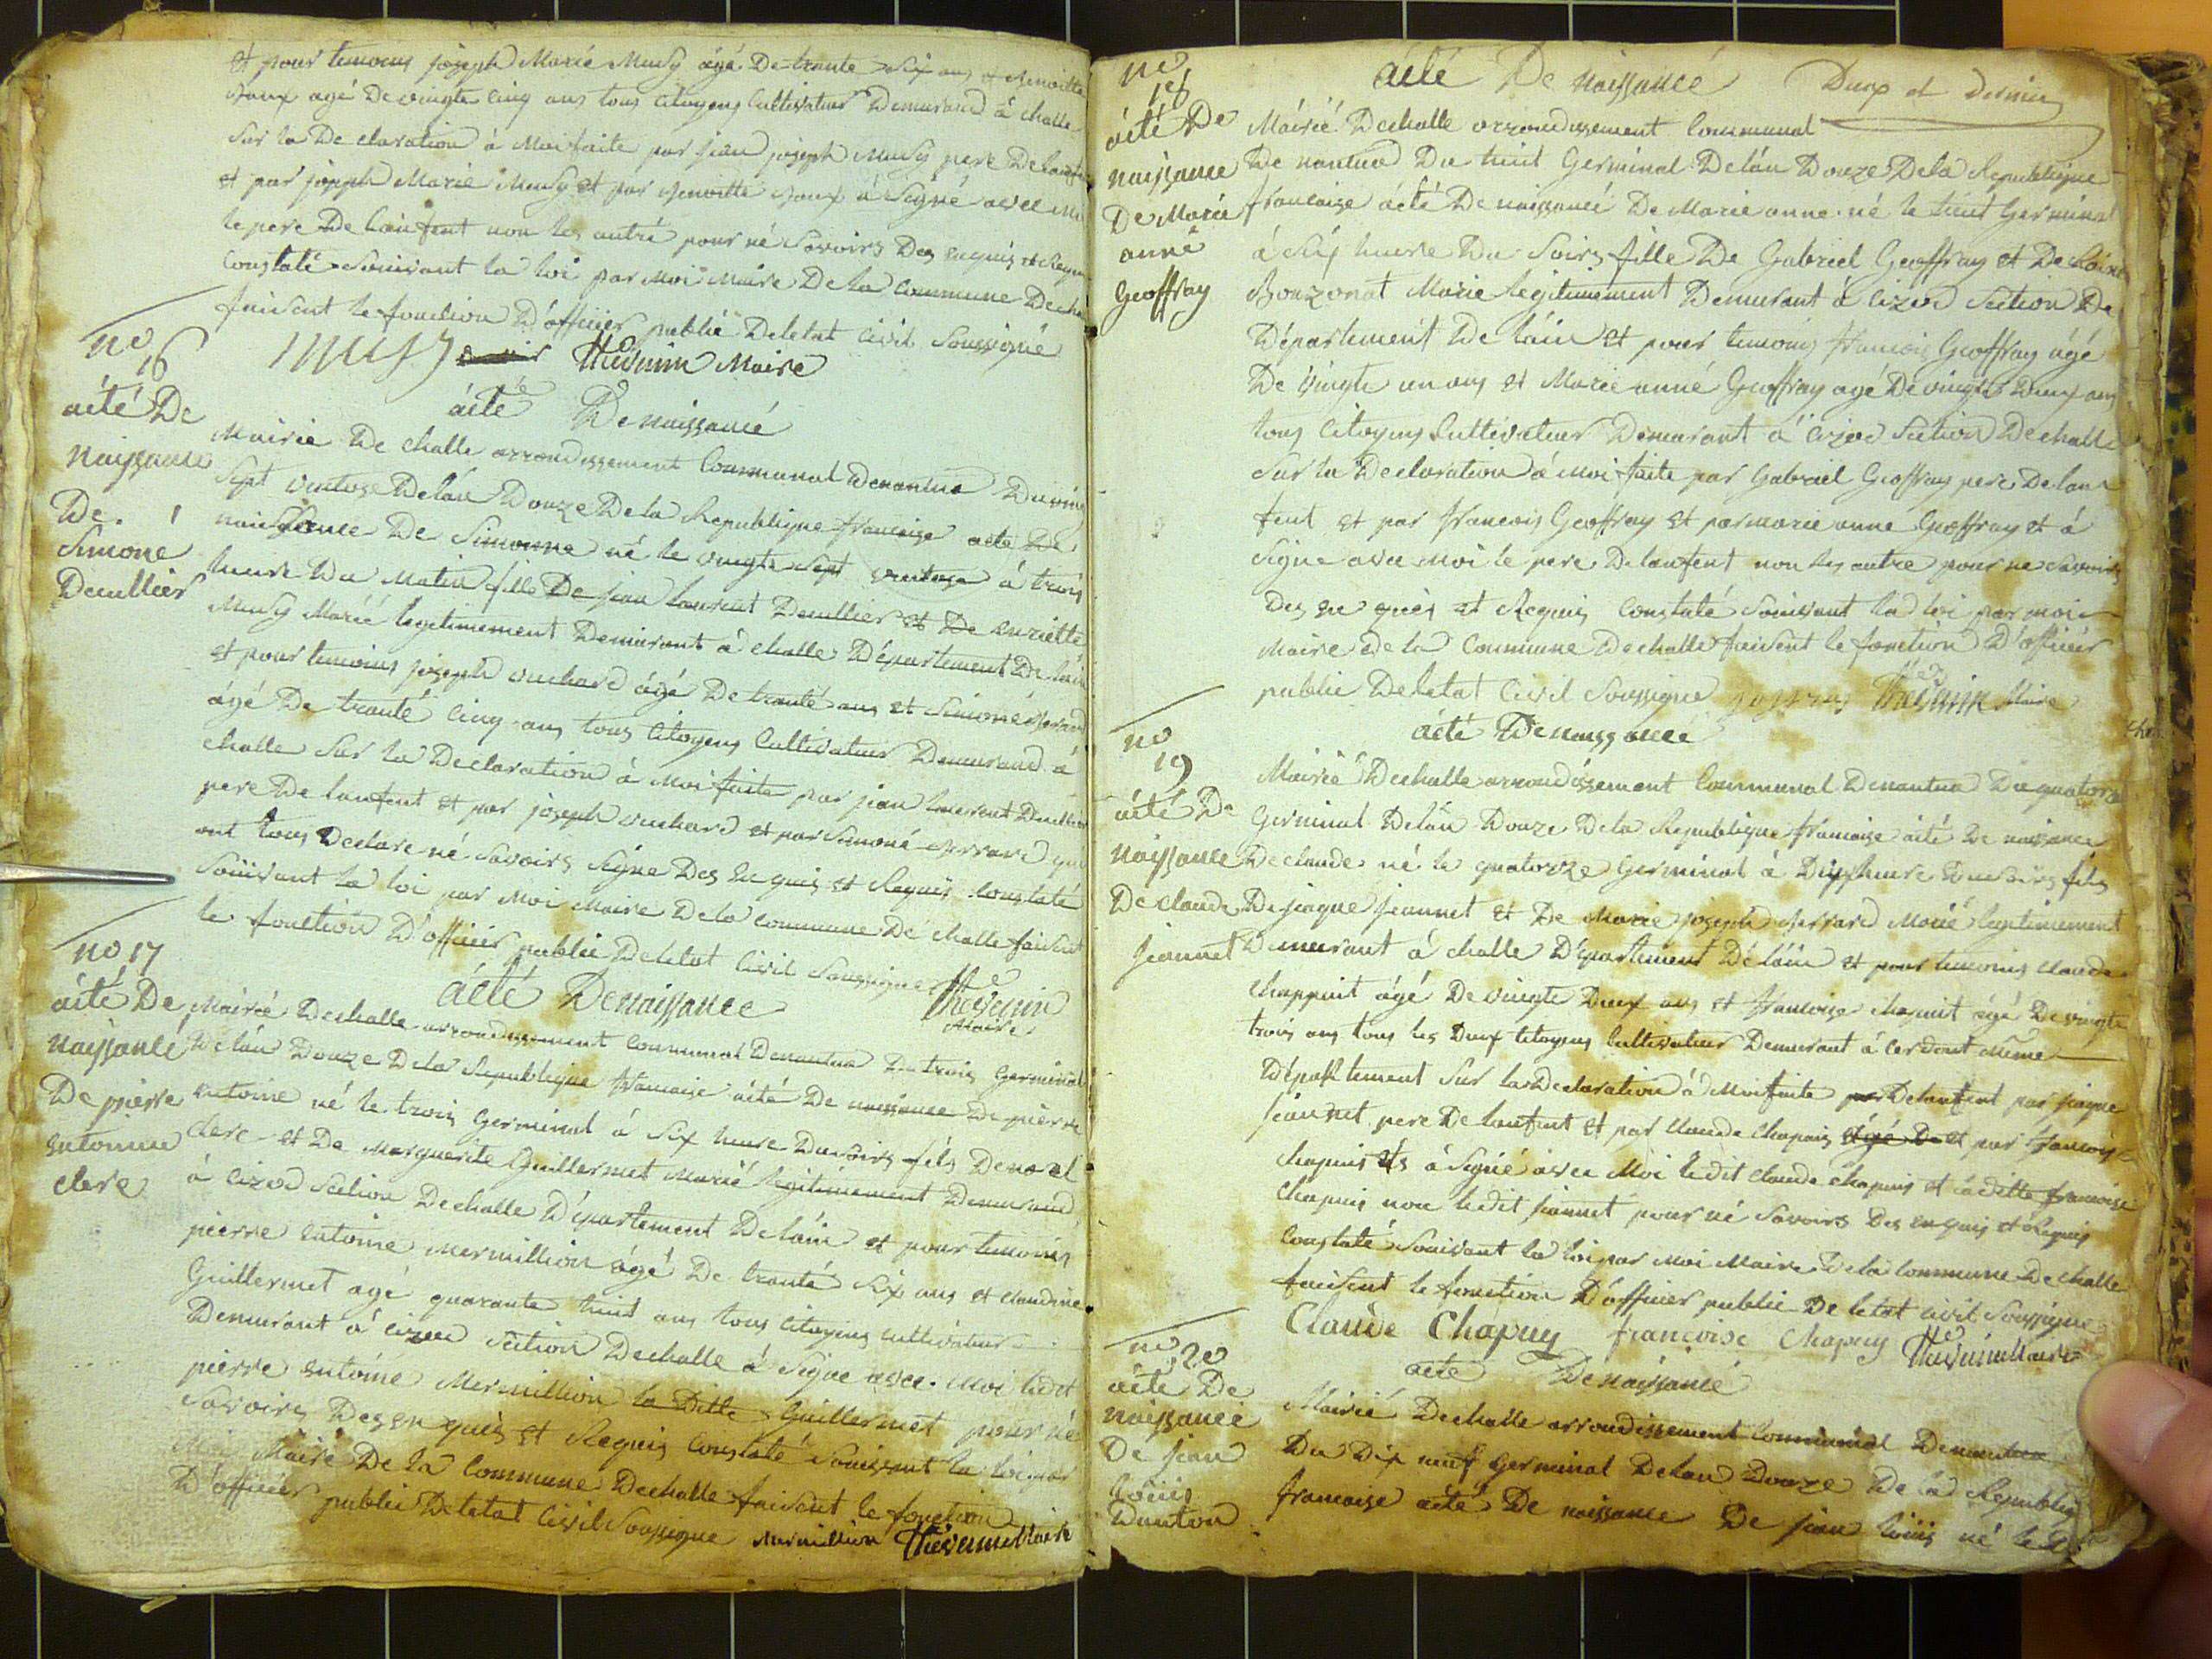 et pour temoins joseph Marie Musy agé De trante Six ans et Benoitte
Vaux agé De vingte Cinq ans tous Citoyens Cultivateur Demurand á Challe
Sur la De claration á Moi faite par jean joseph Musy pere De lanfent
et par joseph Marie Musy et par Benoitte Vaux á Signé avec Moi
le pere De lanfent non les autre pour né Savoirs Des enquis et Requis
Constaté Souivant la loi par Moi Maire De la Commune De challe
faisent le fonction D'officier publie De letat Civil Soussigné
Musy Thevenin Maire
no
16
acté De
Naissance
De
Simone
Decullier
acté De naissancé
Mairie De challe arrondissement Communal De nantua Du vingt
Sept ventose De lán Douze De la Republique francaise acte De
naissance De Simonne né le vingte Sept ventose á trois
heure Du Matin fille De jean laurent Decullier et De enriette
Musy Marié legetimement Demurant á challe Département De láin
et pour temoins joseph vuchard ágé De tranté ans et Simone
ágé De tranté Cinq ans tous Citoyens Cultivateur Demurand á
challe Sur la Declaration á Moi faite par jean laurent Decullier
pere De lanfent et par joseph vuchard et par Simoné qui
ont tous Declare né Savoirs Signe Des en quis et Requis Constaté
Souivant la loi par Moi Maire De la Commune De challe faisent
le fonction D'officier publie De letat Civil Soussigne Thevenin
Maire
no 17
acté De
Naissancé
De pierre
entoinne
clerc
acté De naissance
Mairié De challe arrondissement Communal De nantua Du trois Germinal
De lán Douze De la Republique francaise acté De naissance De pierre
entoine né le trois Germinal á Six heure Du soirs fils De noel
clerc et De Marguerite Guillermet Marié legitimement Demurand
á Cizod Section De challe Département De láin et pour temoins
pierre entoine Mermillion ágé De tranté Six ans et Claudine
Guillermet agé quarante huit ans tous Citoyens Cultivateur
Demurant á Section De challe á Signe avec Moi ledit
pierre entoine Mermillion la Ditte Guillermet pour né
Savoirs Des en quis et Requis Constaté Souivant la loi par
Moi Maire De la Commune De challe faisent le fonction
D'officier publie De letat Civil Soussigne Mermillion Thevenin Maire
no
18
acté De
naissance
De Marie
anné
Geoffray
acté De naissancé Deux et Dernier
Mairié De challe arrondissement Communal
De nantua Du huit Germinal De lán Douze De la Republique
francaise acté De naissancé De Marie anne né le huit Germinal
á Six heure Du Soirs fille De Gabriel Geoffray et De
Bouzonat Marie legitimement Demurant á Cizod Section De
Département De láin et pour temoins francois Geoffray ágé
De vingte un ans et Marie anné Geoffray agé De vingte Deux ans
tous Citoyens Cultivateur Demurant á Cizod Section De challe
Sur la Declaration á Moi faite par Gabriel Geoffray pere De lan
fent et par francois Geoffray et par Marie anne Geoffray et á
Signe avec Moi le pere De lanfent non les autre pour ne Savoirs
Des en quis et Requis Constaté Souivant la loi par moi
Maire De la Commune De challe faisent le fonction D'officier
publie De letat Civil Soussigne Thevenin Maire
no
19
acté De
Naissance
De Claude
Jeannet
acté De naissance
Mairié De challe arrondissement Communal De nantua Du quatorze
Germinal De lán Douze De la Republique francaise acté De naissance
De Claude né le quatorze Germinal á Dix heure Du soirs fils
De jaque jeannet et De Marie joseph Marié legitimement
Demeurant á challe Département De láin et pour temoins Claude
Chappuit ágé De vingte Deux ans et francoise Chapuit ágé De vingte
trois ans tous les Deux Citoyens Cultivateur Demurant á Cerdont même
Département Sur la Declaration á Moi faite par De lanfent par jaque
jeannet pere De lanfent et par Claude Chapuis et par francoise
Chapuis á Signé avec Moi le dit Claude Chapuis et la ditte francoise
Chapuis non le dit jeannet pour né Savoirs Des enquis et Requis
Constaté Souivant la loi par Moi Maire De la Commune De challe
faisent le fonction D'officier publie De letat Civil Soussigne
Claude Chapuy francoise Chapuy Thevenin Maire
no 20
acte De
naissance
De jean
louis
Danton
acté De náissancé
Mairié De challe arrondissement Communal De nantua
Du Dix neuf Germinal De lan Douze De la Republique
francaise acté De naissance De jean louis né le